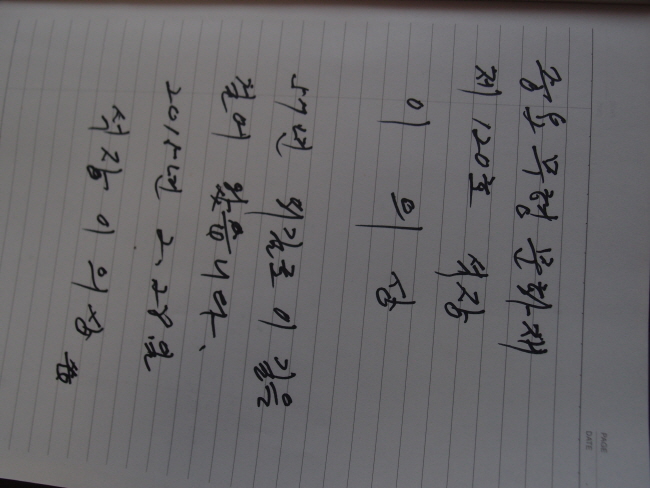 중요무형문화재
제 120호 석장
이 의 상
57년 외길로 이 길을
걸어 왔습니다.
2015년 2. 28일
석장 이의상
PAGE
DATE